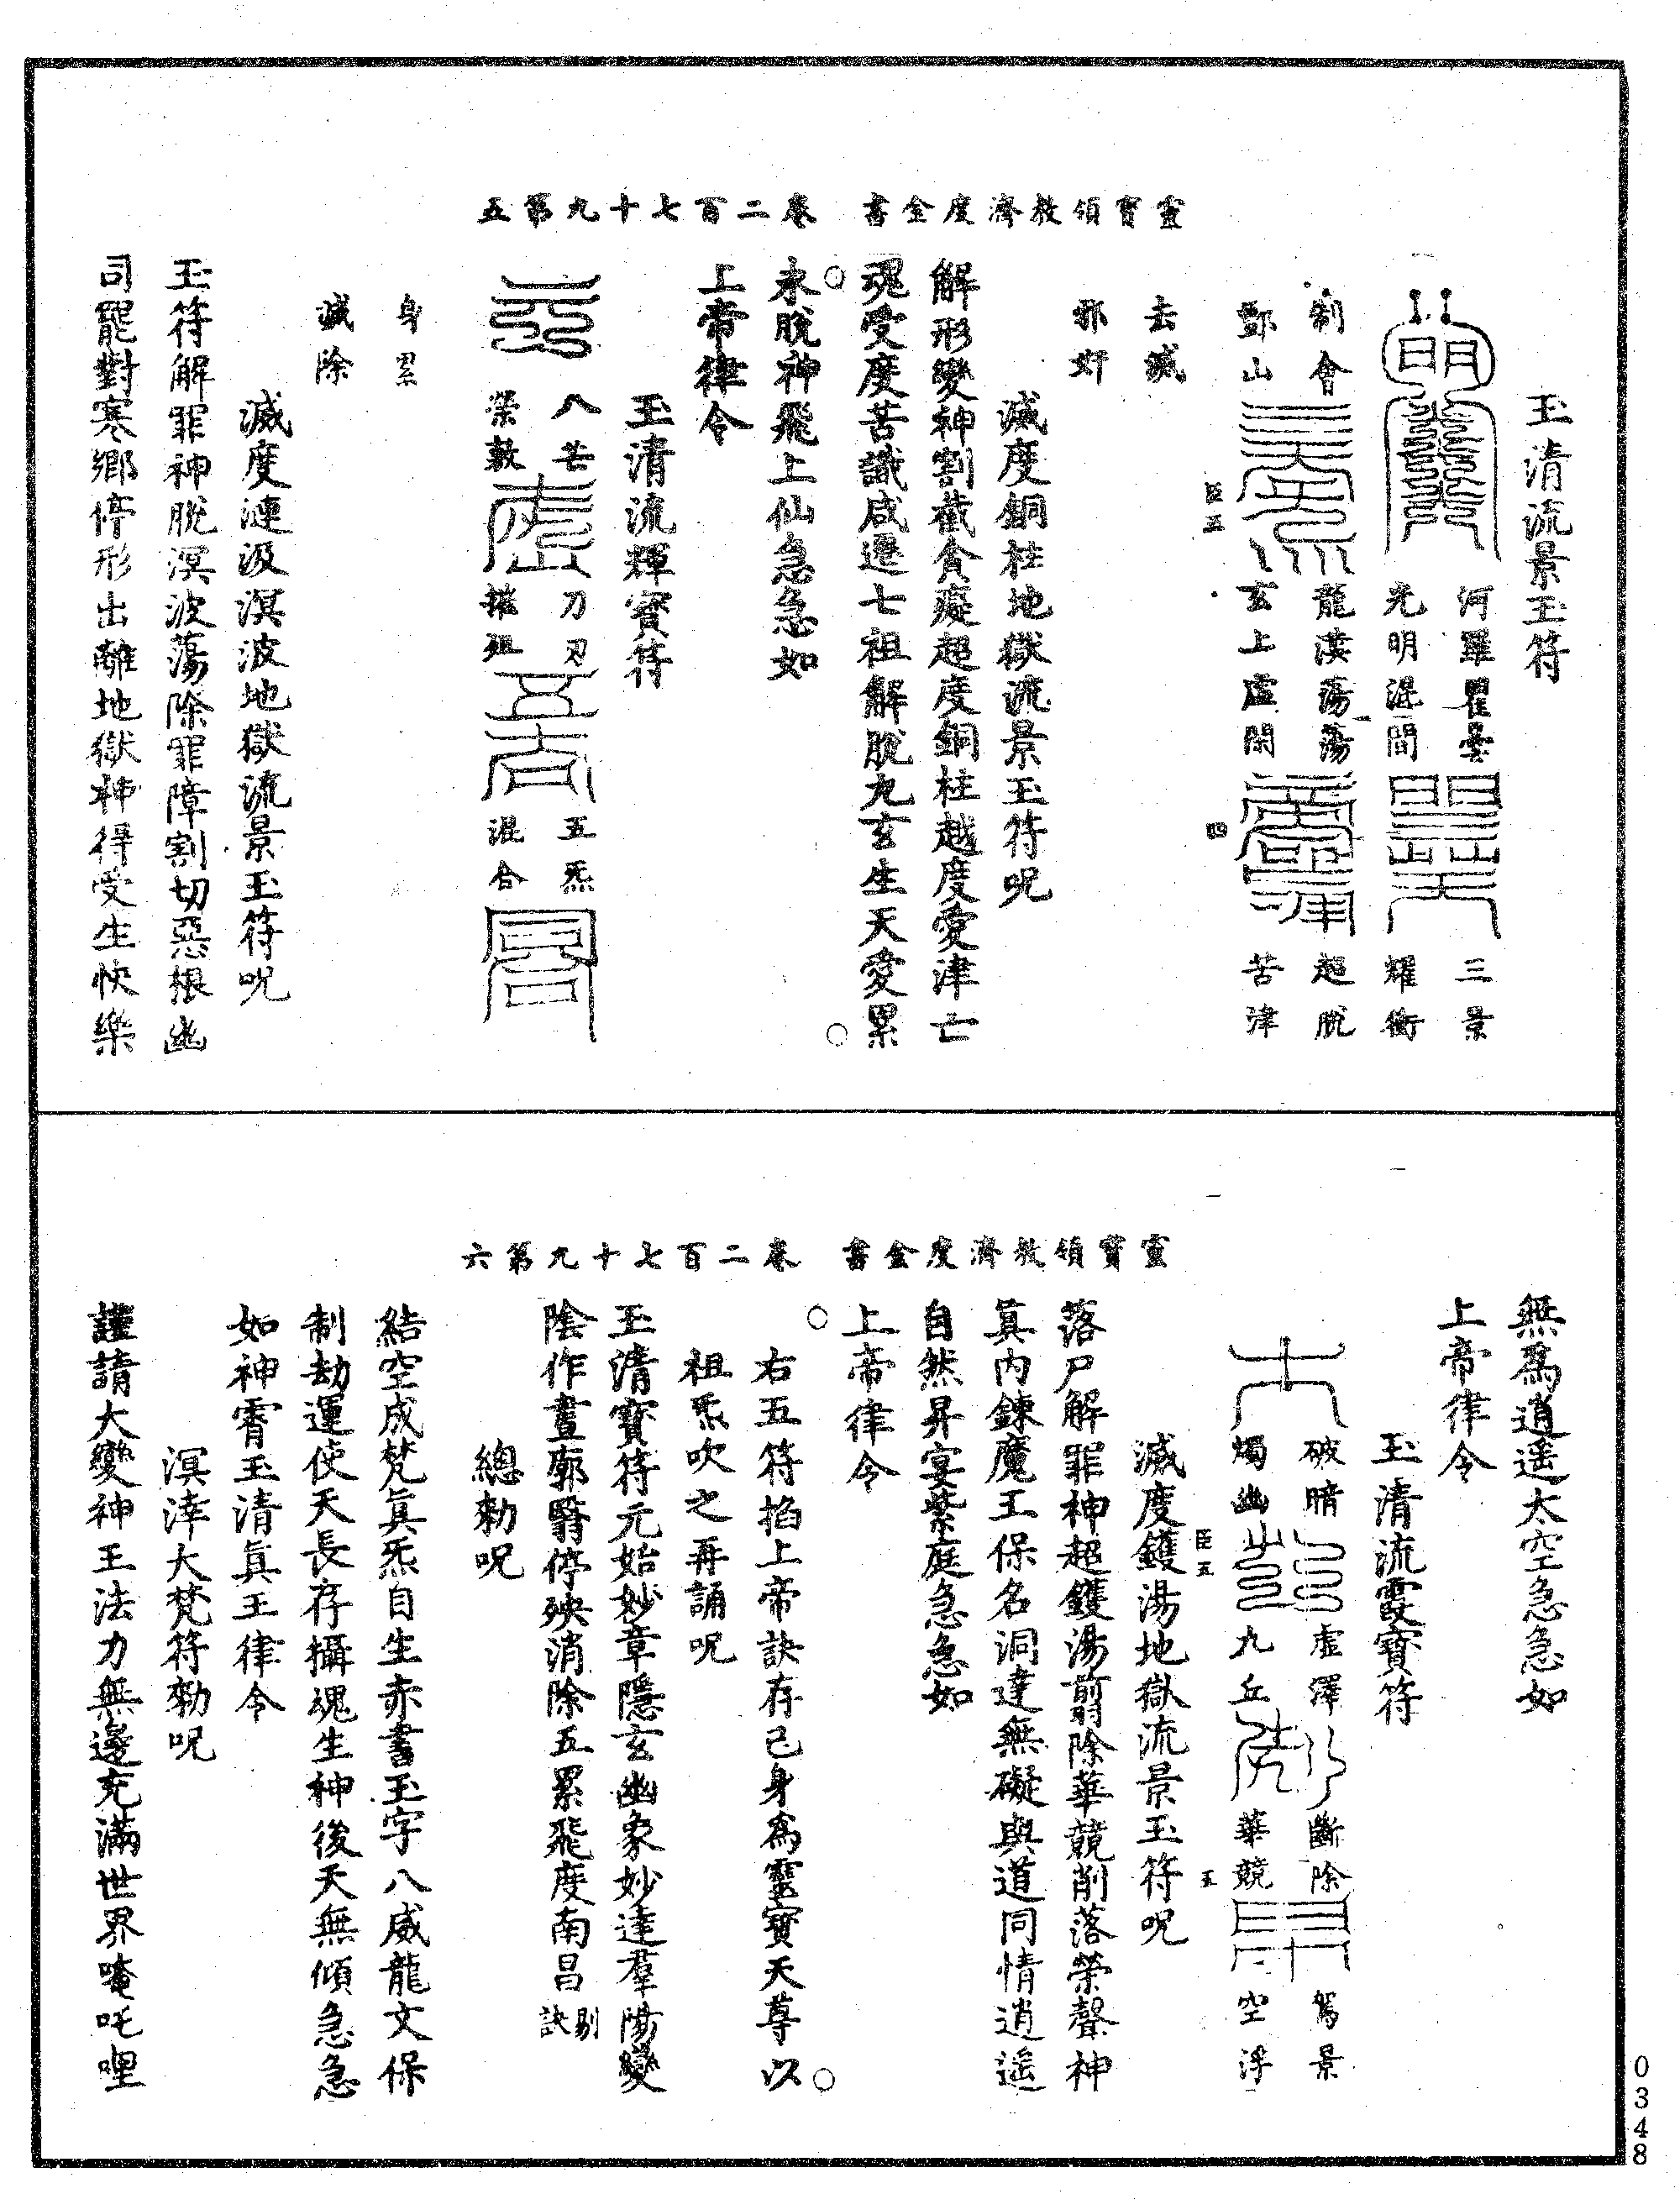 靈寶領教濟度金書　卷二百七十九第五
玉清流景玉符
河羅瞿曇　三景
光明混間　耀衡
制會　龍漢蕩蕩　超脫
酆山　玄上虛閑　苦津
臣五　四
去滅
邪奸
滅度銅柱地獄流景玉符呪
解形變神割截貪癡超度銅柱越度愛津亡
魂受度苦識咸遷七祖解脫九玄生天愛累
永脫神飛上仙急急如
上帝律令
玉清流輝寶符
八芒　刀刃　五炁
榮敷　摧　混合
身累
滅除
滅度漣汲溟波地獄流景玉符呪
玉符解罪神脫溟波蕩除罪障割切惡根幽
司罷對寒鄉停形出離地獄神得受生快樂
靈寶領教濟度金書　卷二百七十九第六
無爲逍遙太空急急如
上帝律令
玉清流霞寶符
破暗　虛澤　斷除　駕景
燭幽　九丘　華競　空浮
臣五　五
滅度鑊湯地獄流景玉符呪
落尸解罪神超鑊湯剪除華競削落榮聲神
眞內鍊魔王保名洞達無礙與道同情逍遙
自然昇宴紫庭急急如
上帝律令
右五符掐上帝訣存己身爲靈寶天尊以
祖炁吹之再誦呪
玉清寶符元始妙章隱玄幽象妙達羣陽變
陰作晝廓翳停殃消除五累飛度南昌剔訣
總勑呪
結空成梵眞炁自生赤書玉字八威龍文保
制劫運使天長存攝魂生神後天無傾急急
如神霄玉清眞王律令
溟涬大梵符勑呪
謹請大變神王法力無邊充滿世界唵吒哩
0348